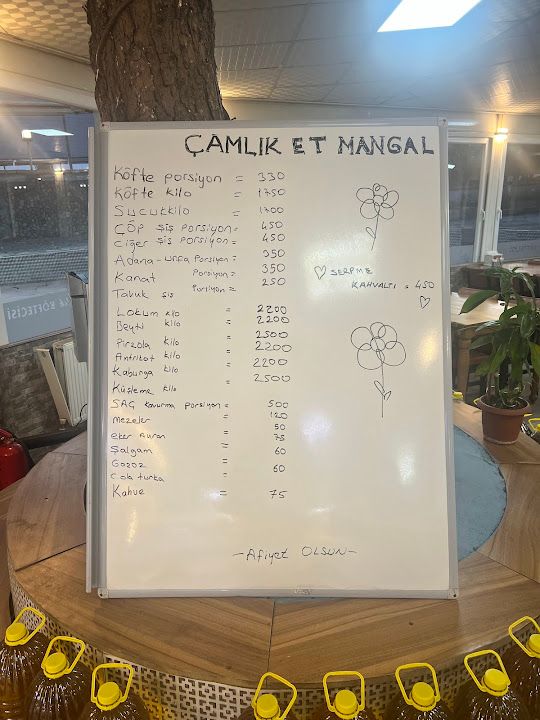 ÇAMLIK ET MANGAL
Köfte porsiyon = 330
Köfte kilo = 1750
Sucuk kilo = 1700
ÇÖP şiş porsiyon = 450
Ciğer şiş porsiyon = 450
Adana-urfa porsiyon = 350
Kanat porsiyon = 350
Tavuk şiş porsiyon = 250
Lokum kilo = 2200
Beyti kilo = 2200
Pirzola kilo = 2500
Antrikot kilo = 2200
Kaburga kilo = 2200
Küşleme kilo = 2500
SAÇ kavurma porsiyon = 500
Mezeler = 120
eker Ayran = 50
Şalgam = 75
Gazoz = 60
Cola turka = 60
Kahve = 75
SERPME
KAHVALTI = 450
-Afiyet OLSUN-
KÖFTECİSİ